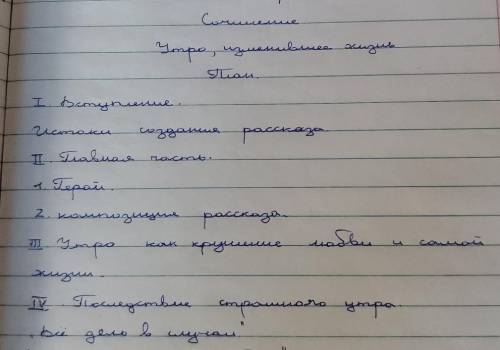 Сочинение
Утро, изменившее жизнь
План.
I. Вступление.
Истоки создания рассказа
II. Главная часть.
1. Герой.
2. композиция рассказа.
III. Утро как крушение любви и самой
жизни.
IV. Последствие страшного утра.
"Всё дело в случаи"